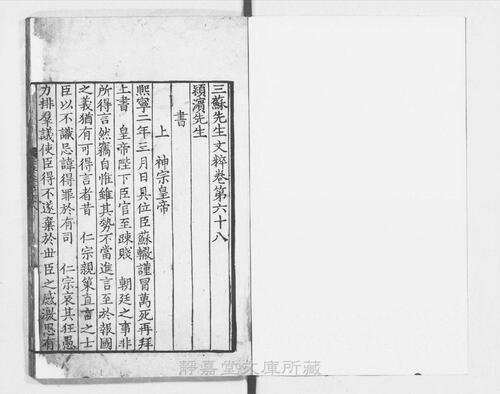 三蘇先生文粹卷第六十八
潁濱先生
書
上 神宗皇帝
熙寧二年三月日具位臣蘇轍謹冒萬死再拜
上書 皇帝陛下臣官至踈賤 朝廷之事非
所得言然竊自惟雖其勢不當進言至於報國
之義猶有可得言者昔 仁宗親策直言之士
臣以不識忌諱得罪於有司 仁宗哀其狂愚
力排羣議使臣得不遂棄於世臣之感激思有
靜嘉堂文庫所藏